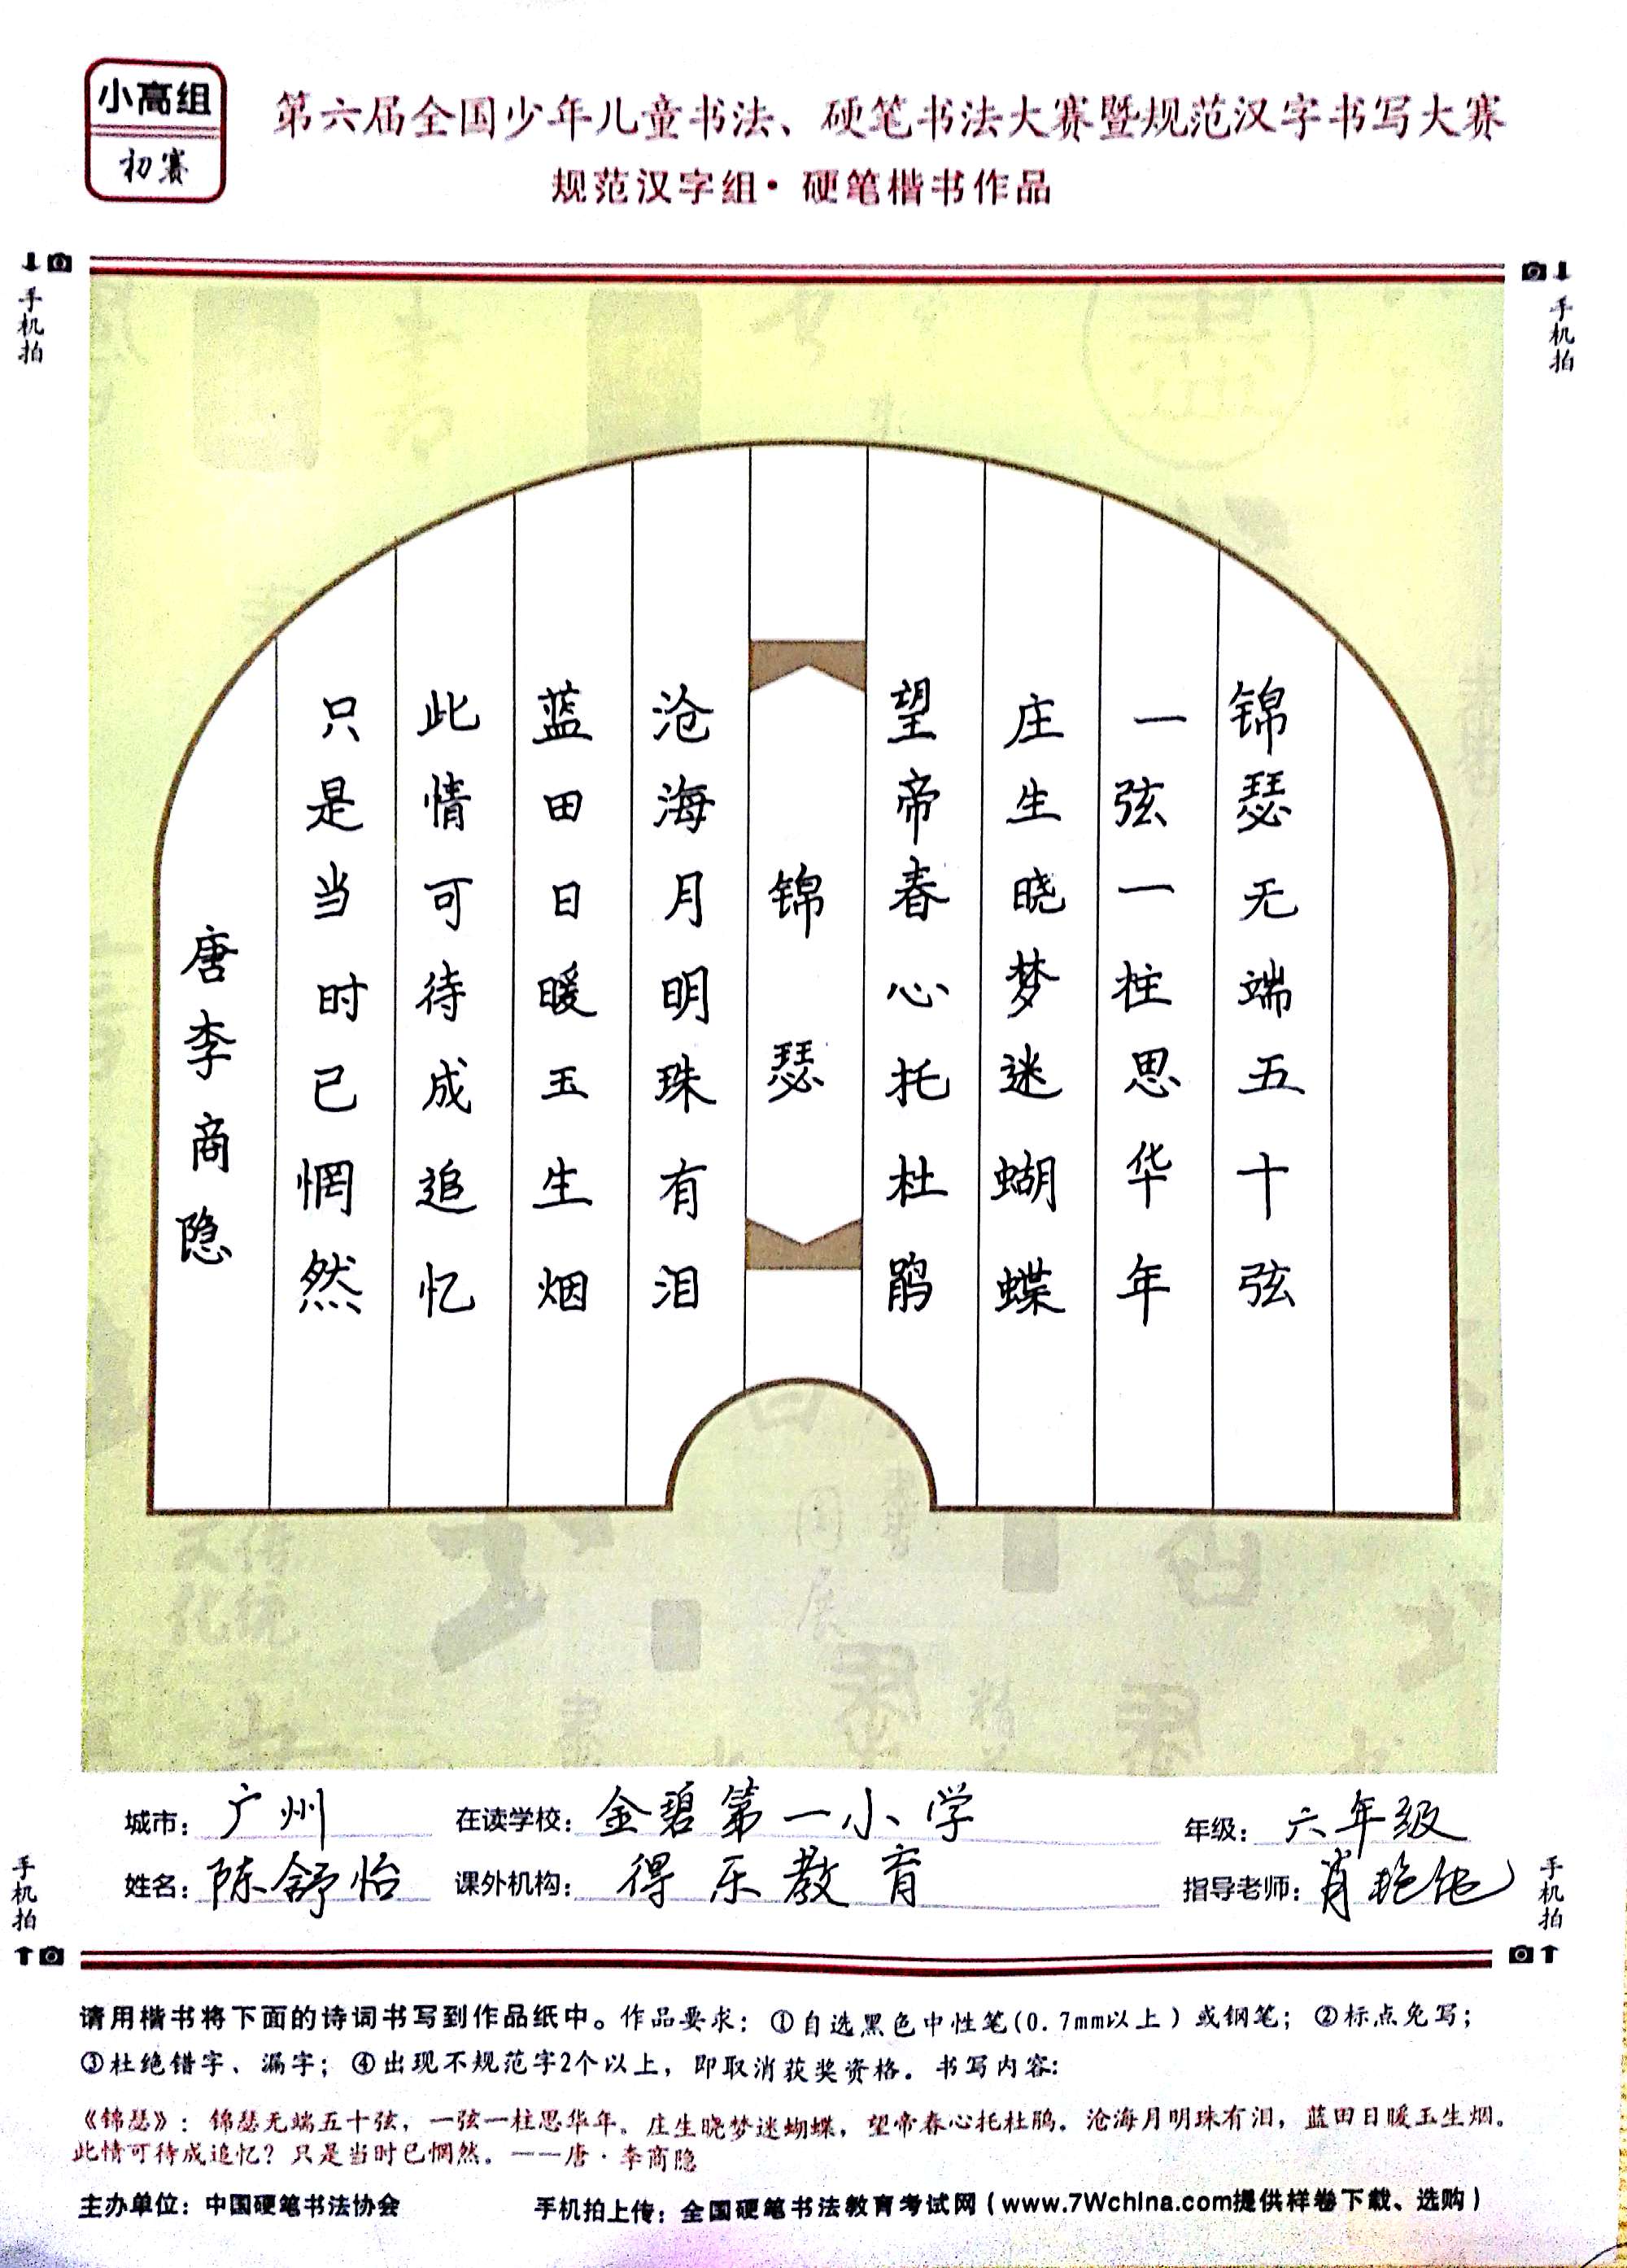 小高组
初赛
第六届全国少年儿童书法、硬笔书法大赛暨规范汉字书写大赛
规范汉字组·硬笔楷书作品
手机拍
手机拍
锦瑟无端五十弦
一弦一柱思华年
庄生晓梦迷蝴蝶
望帝春心托杜鹃
锦瑟
沧海月明珠有泪
蓝田日暖玉生烟
此情可待成追忆
只是当时已惘然
唐李商隐
城市：广州 在读学校：金碧第一小学 年级：六年级
姓名：陈舒怡 课外机构：得乐教育 指导老师：肖艳
手机拍
手机拍
请用楷书将下面的诗词书写到作品纸中。作品要求：①自选黑色中性笔(0.7mm以上)或钢笔；②标点免写；
③杜绝错字、漏字；④出现不规范字2个以上，即取消获奖资格。书写内容:
《锦瑟》：锦瑟无端五十弦，一弦一柱思华年。庄生晓梦迷蝴蝶，望帝春心托杜鹃。沧海月明珠有泪，蓝田日暖玉生烟。
此情可待成追忆？只是当时已惘然。——唐·李商隐
主办单位：中国硬笔书法协会 手机拍上传：全国硬笔书法教育考试网（www.7Wchina.com提供样卷下载、选购）